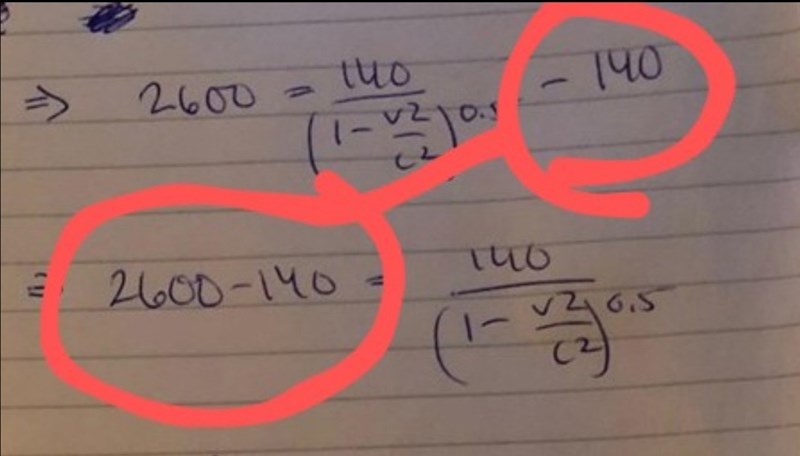 ⇒ 2600 = 140/(1 - v2/c2)^0.5 - 140
⇒ 2600 - 140 = 140/(1 - v2/c2)^0.5